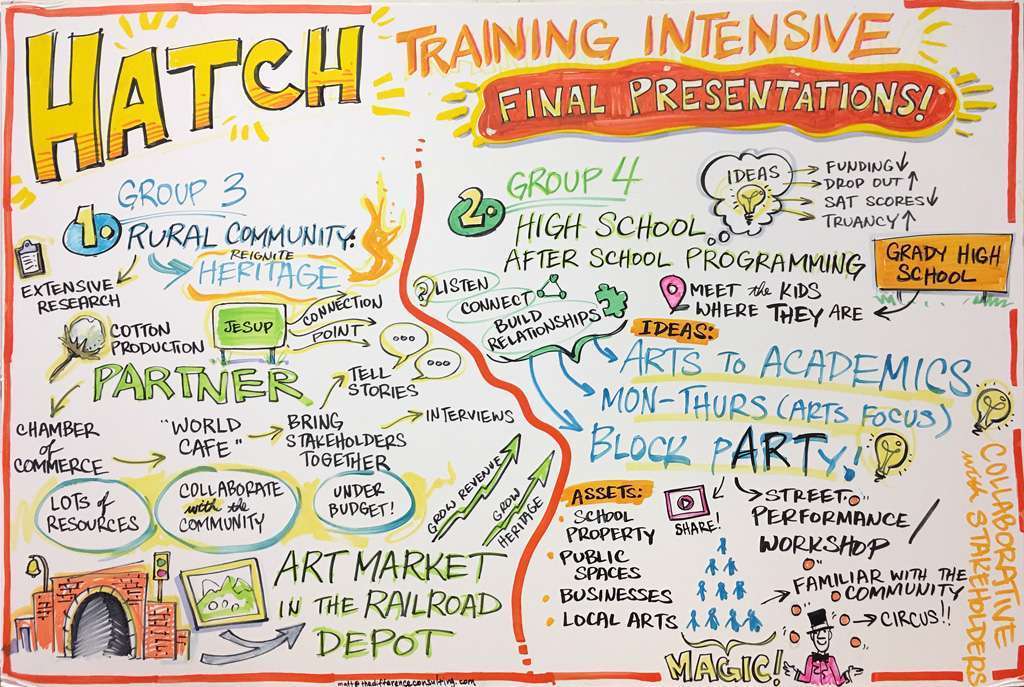 HATCH
TRAINING INTENSIVE
FINAL PRESENTATIONS!
GROUP 3
1. RURAL COMMUNITY:
REIGNITE
HERITAGE
EXTENSIVE
RESEARCH
COTTON
PRODUCTION
JESUP
CONNECTION
POINT
PARTNER
TELL
STORIES
CHAMBER
of
COMMERCE
"WORLD
CAFE"
BRING
STAKEHOLDERS
TOGETHER
INTERVIEWS
LOTS of
RESOURCES
COLLABORATE
with the
COMMUNITY
UNDER
BUDGET!
GROW REVENUE
GROW
HERITAGE
ART MARKET
IN THE RAILROAD
DEPOT
matt@thedifferenceconsulting.com
GROUP 4
2. HIGH SCHOOL
AFTER SCHOOL PROGRAMMING
IDEAS
FUNDING↓
DROP OUT↑
SAT SCORES↓
TRUANCY↑
GRADY HIGH
SCHOOL
? LISTEN
CONNECT
BUILD
RELATIONSHIPS
MEET the KIDS
WHERE THEY ARE
IDEAS:
ARTS TO ACADEMICS
MON-THURS (ARTS FOCUS)
BLOCK pARTy!
ASSETS:
• SCHOOL
PROPERTY
• PUBLIC
SPACES
• BUSINESSES
• LOCAL ARTS
SHARE!
STREET
PERFORMANCE /
WORKSHOP
FAMILIAR WITH THE
COMMUNITY
CIRCUS!!
MAGIC!
COLLABORATIVE
with STAKEHOLDERS